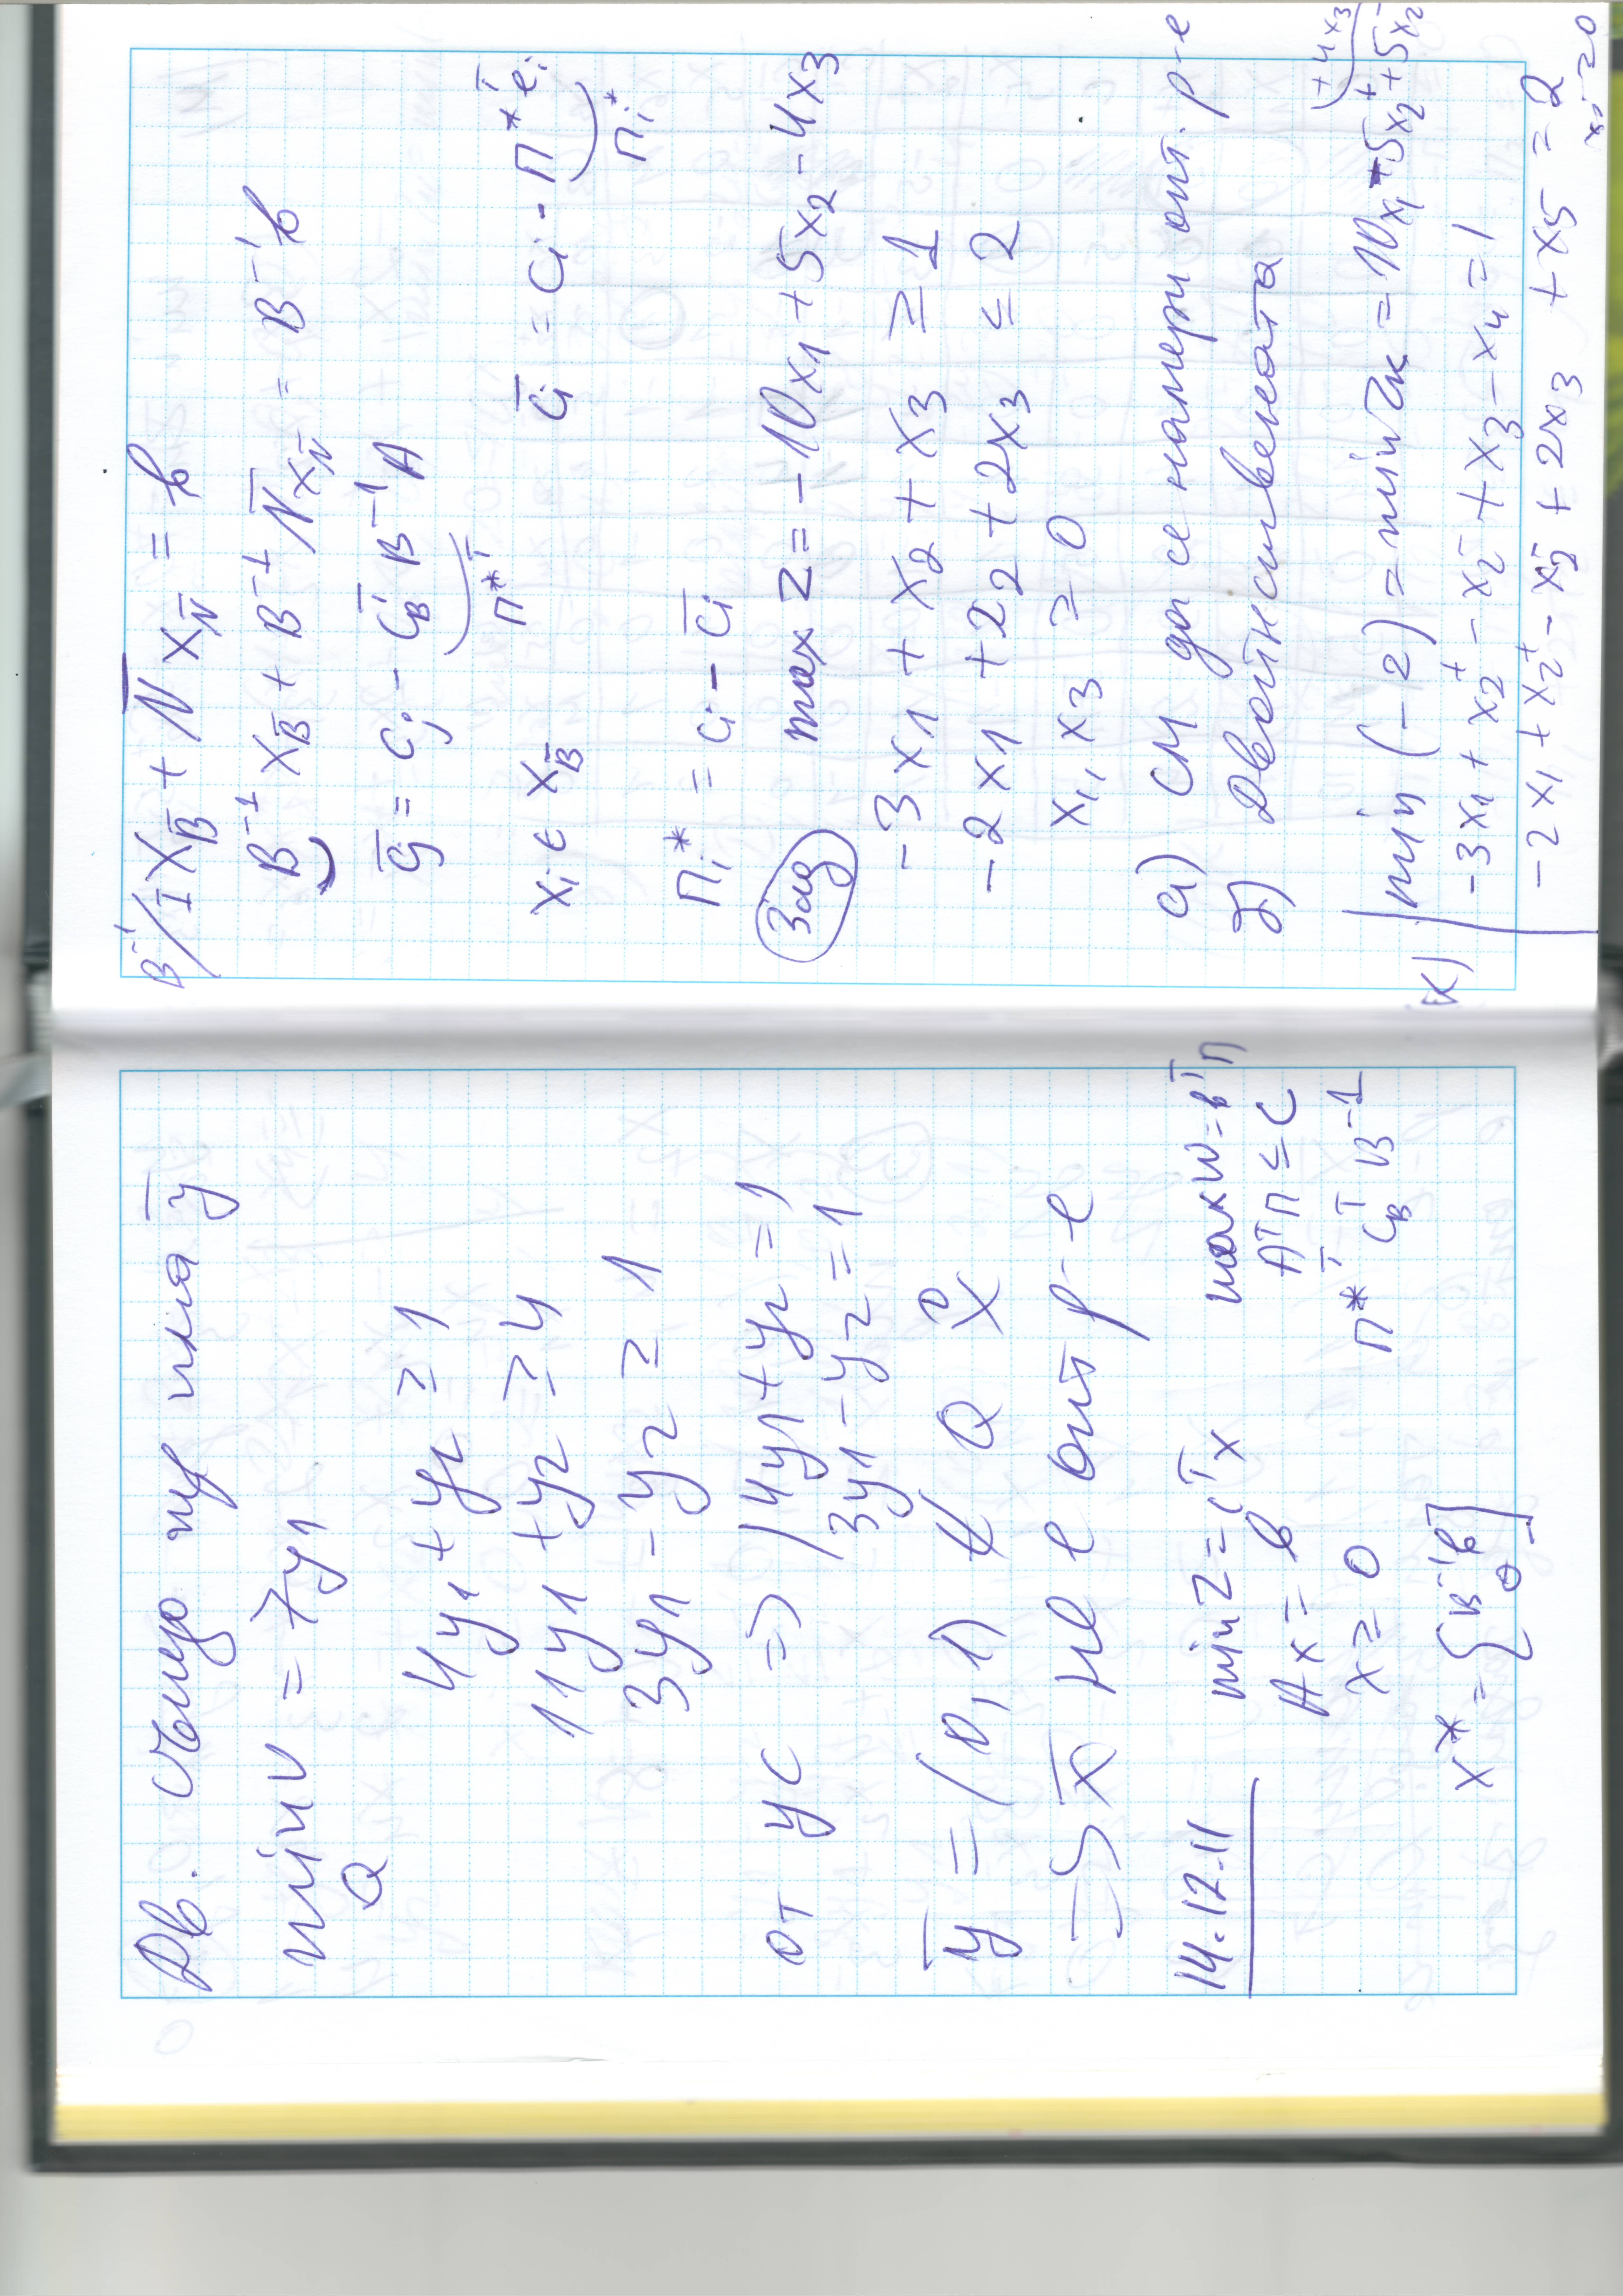 Дв. Също пул има ȳ
min v = 7y₁
Q
4y₁ + y₂ ≥ 1
11y₁ + y₂ ≥ 4
3y₁ - y₂ ≥ 1
от УС => | 4y₁ + y₂ = 1
3y₁ - y₂ = 1
ȳ = (0, 1) ∉ Q
=> x̄ не е опт р-е
14.12.11
min z = cᵀx
Ax = b
x ≥ 0
max w = bᵀπ
Aᵀπ ≤ c
π*ᵀ c_Bᵀ B⁻¹
x* = { B⁻¹b
0
B⁻¹/ I X_B̄ + N̄ x_N̄ = b
B⁻¹ x_B̄ + B⁻¹ N̄ x_N̄ = B⁻¹ b
c̄ⱼ = cⱼ - c̄_Bᵀ B⁻¹ A
π*ᵀ
xᵢ ∈ x_B̄
c̄ᵢ = cᵢ - π*ᵀ eᵢ
πᵢ*
πᵢ* = cᵢ - c̄ᵢ
Зад
max z = -10x₁ + 5x₂ - 4x₃
-3x₁ + x₂ + x₃ ≥ 1
-2x₁ + 2₂ + 2x₃ ≤ 2
x₁, x₃ ≥ 0
а) СМ да се намери опт. р-е
б) Двойнствената
К) | min (-z) = min z_k = 10x₁ + 5x₂⁺ + 5x₂⁻
+4x₃
-3x₁ + x₂⁺ - x₂⁻ + x₃ - x₄ = 1
-2x₁ + x₂⁺ - x₂⁻ + 2x₃ + x₅ = 2
xⱼ ≥ 0